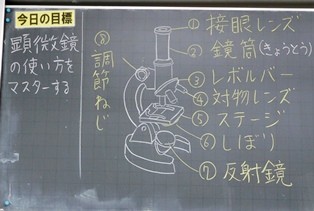 今日の目標
顕微鏡
の使い方を
マスターする
⑧調節ねじ
①接眼レンズ
②鏡筒(きょうとう)
③レボルバー
④対物レンズ
⑤ステージ
⑥しぼり
⑦反射鏡